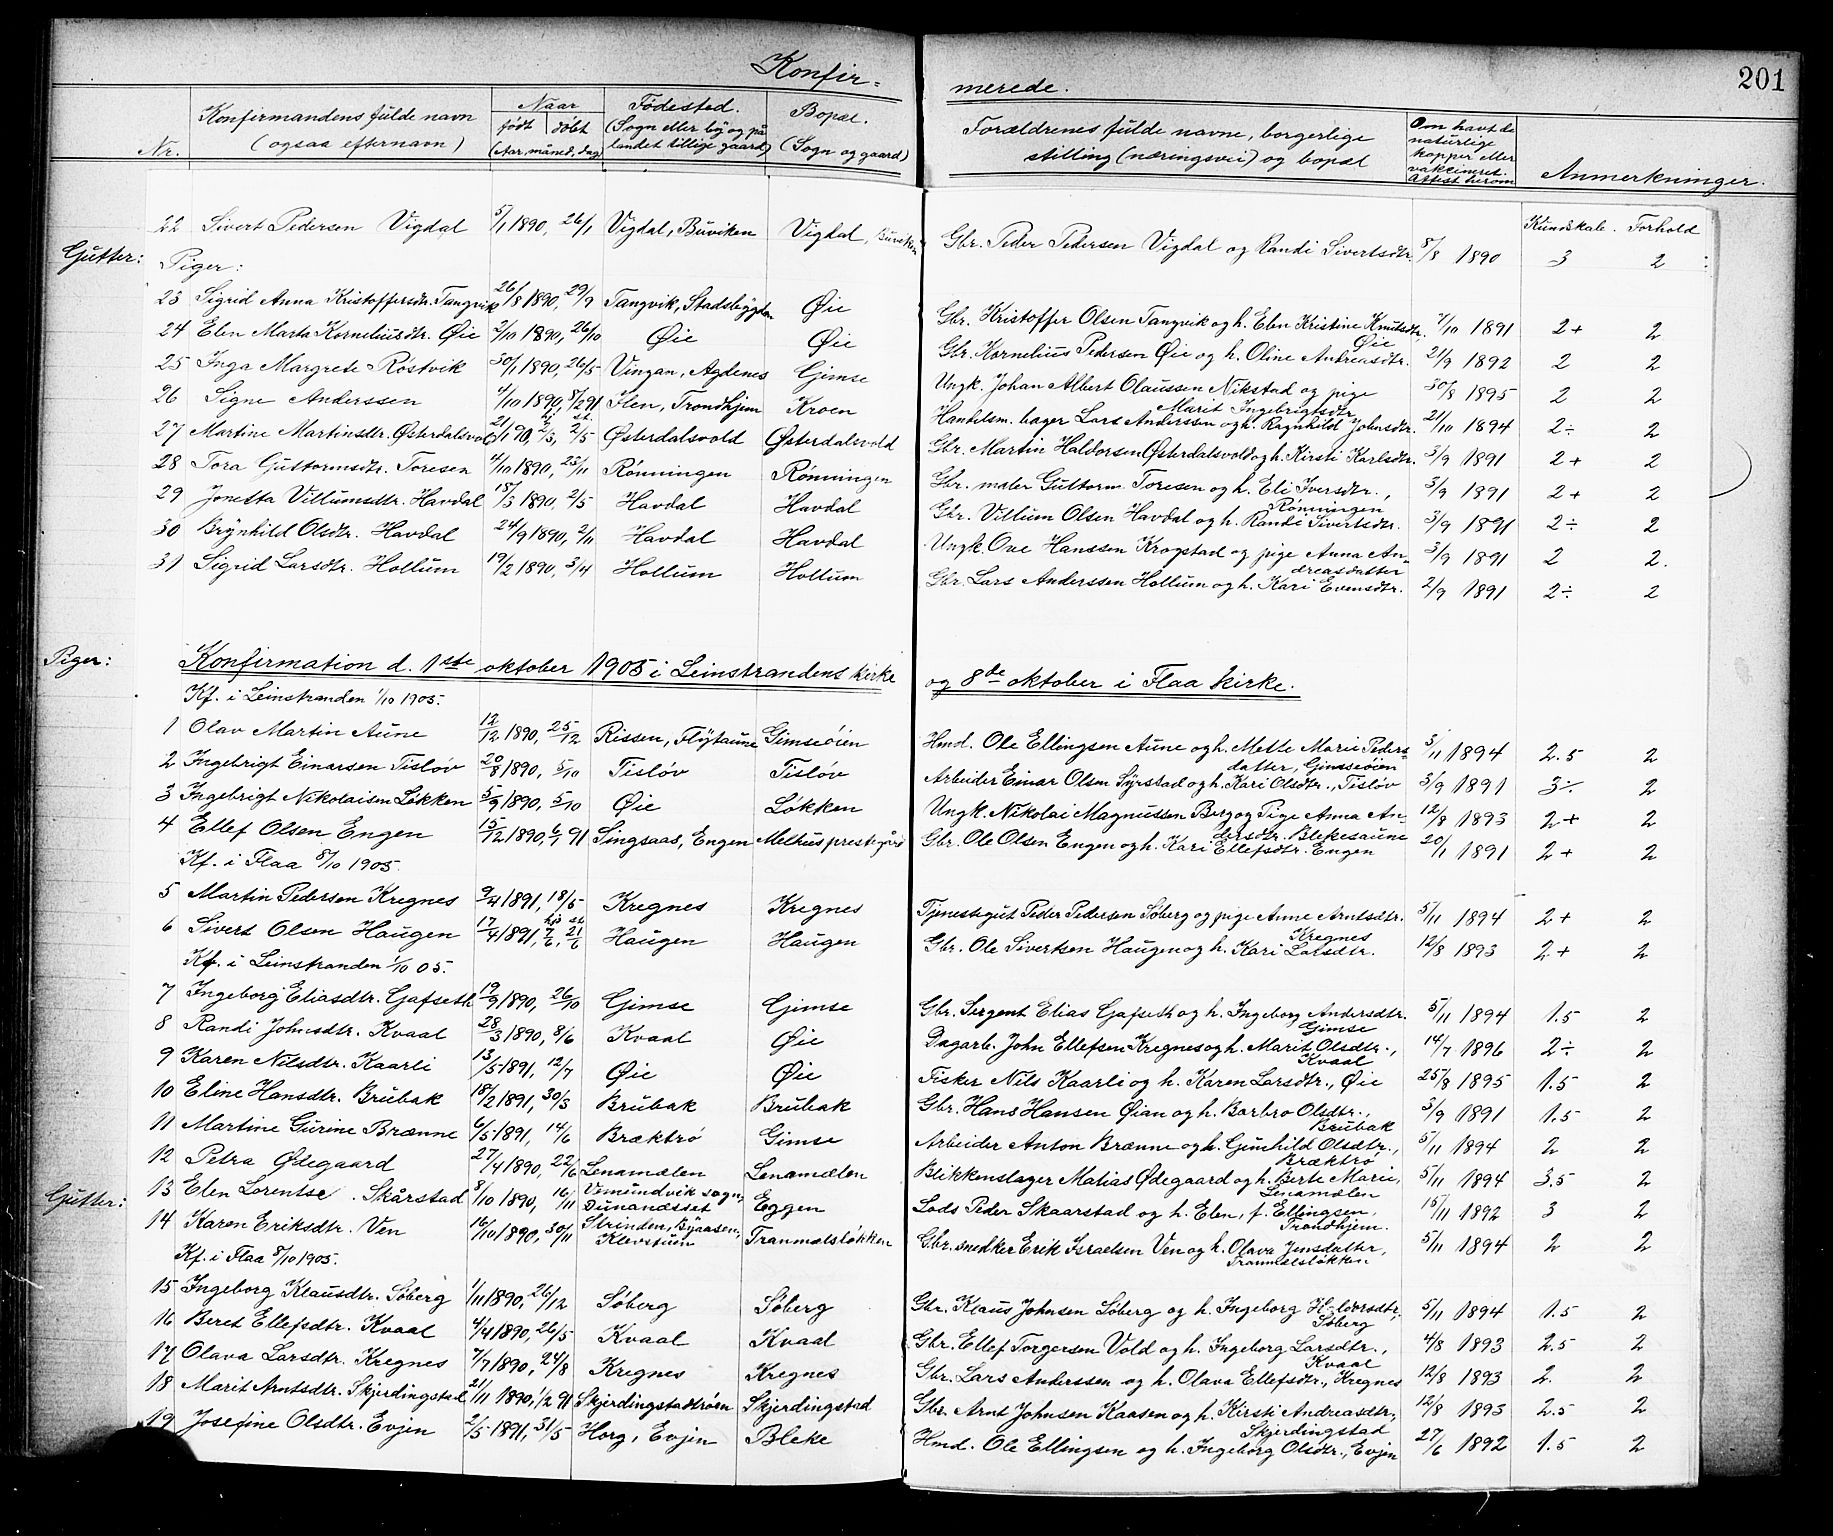 201
Konfir- merede.
Nr. Konfirmandens fulde navn (ogsaa efternavn) Naar født døbt (Aar, måned, dag) Fødested. (Sogn eller by og på landet tillige gaard) Bopæl. (Sogn og gaard) Forældrenes fulde navne, borgerlige stilling (næringsvei) og bopæl Om havt de naturlige kopper eller vakcineret. Attest herom Anmerkninger.
Kundskab. Forhold
Gutter:
22 Sivert Pedersen Vigdal 5/1 1890, 26/1 Vigdal, Buviken Vigdal, Buviken Gbr. Peder Pedersen Vigdal og Randi Sivertsdtr. 8/8 1890 3 2
Piger:
23 Sigrid Anna Kristoffersdtr. Tangvik 26/8 1890, 29/9 Tangvik, Stadsbygden Øie Gbr. Kristoffer Olsen Tangvik og h. Elen Kristine Knutsdtr. Øie 7/10 1891 2+ 2
24 Elen Marta Korneliusdtr. Øie 2/10 1890, 26/10 Øie Øie Gbr. Kornelius Pedersen Øie og h. Oline Andreasdtr. 21/9 1892 2 2
25 Inga Margrete Røstvik 30/1 1890, 26/5 Vingan, Agdenes Gimse Ungk. Johan Albert Olaussen Nikstad og pige Marit Ingebrigtsdtr 30/8 1895 2 2
26 Signe Anderssen 4/10 1890, 8/2 91 Ilen, Trondhjem Kroen Handelsm. bager Lars Anderssen og h. Ragnhild Johnsdtr. 21/10 1894 2÷ 2
27 Martine Martinsdtr. Østerdalsvold 21/1 90, 2/3, 2/5 Østerdalsvold Østerdalsvold Gbr. Martin Haldorsen Østerdalsvold og h. Kirsti Karlsdtr. 3/9 1891 2+ 2
28 Tora Guttormsdtr. Toresen 4/10 1890, 23/11 Rønningen Rønningen Gbr. maler Guttorm Toresen og h. Eli Iversdtr., Rønningen 3/9 1891 2+ 2
29 Jonetta Villumsdtr. Havdal 18/3 1890, 2/5 Havdal Havdal Gbr. Villum Olsen Havdal og h. Randi Sivertsdtr. 3/9 1891 2÷ 2
30 Brynhild Olsdtr. Havdal 24/9 1890, 2/11 Havdal Havdal Ungk. Ove Hanssen Krogstad og pige Anna Andreasdatter 3/9 1891 2 2.
31 Sigrid Larsdtr. Hollum 19/2 1890, 3/4 Hollum Hollum Gbr. Lars Anderssen Hollum og h. Kari Evensdtr. 2/9 1891 2÷ 2
Piger:
Konfirmation d. 1ste oktober 1905 i Leinstrandens kirke og 8de oktober i Flaa kirke.
Kf. i Leinstranden 1/10 1905.
1 Olav Martin Aune 12/12 1890, 25/12 Rissen, Flytaune Gimseøien Hmd. Ole Ellingsen Aune og h. Mette Marie Pedersdatter, Gimseøien 5/11 1894 2.5 2
2 Ingebrigt Einarsen Tisløv 20/8 1890, 5/10 Tisløv Tisløv Arbeider Einar Olsen Syrstad og h. Kari Olsdtr., Tisløv 3/9 1891 3÷ 2
3 Ingebrigt Nikolaisen Løkken 5/9 1890, 5/10 Øie Løkken Ungk. Nikolai Magnussen Berg og Pige Anna Andersdtr. Blekesaune 12/8 1893 2+ 2
4 Ellef Olsen Engen 15/12 1890, 6/1 91 Singsaas, Engen Melhus prestegård Gbr. Ole Olsen Engen og h. Kari Ellefsdtr. Engen 20/1 1891 2+ 2
Kf. i Flaa 8/10 1905.
5 Martin Pedersen Kregnes 9/4 1891, 18/5 Kregnes Kregnes Tjenestegut Peder Pedersen Søberg og pige Anne Arntsdtr. Kregnes 5/11 1894 2+ 2
6 Sivert Olsen Haugen 17/4 1891, 7/6, 21/6 Haugen Haugen Gbr. Ole Sivertsen Haugen og h. Kari Larsdtr. 12/8 1893 2+ 2
Kf. i Leinstranden 1/10 05.
7 Ingeborg Eliasdtr. Gafseth 19/9 1890, 26/10 Gimse Gimse Gbr. Sergent Elias Gafseth og h. Ingeborg Andersdtr. Gimse 5/11 1894 1.5 2
8 Randi Johnsdtr. Kvaal 28/3 1890, 8/6 Kvaal Øie Dagarb. John Ellefsen Kregnes og h. Marit Olsdtr., Kvaal 14/7 1896 2÷ 2
9 Karen Nilsdtr. Kaarli 13/5 1891, 12/7 Øie Øie Fisker Nils Kaarli og h. Karen Larsdtr., Øie 25/8 1895 1.5 2
10 Eline Hansdtr. Brubak 18/2 1891, 30/3 Brubak Brubak Gbr. Hans Hansen Øian og h. Barbro Olsdtr., Brubak 3/9 1891 1.5 2
11 Martine Gurine Brænne 6/5 1891, 14/6 Bræktrø Gimse Arbeider Anton Brænne og h. Gunhild Olsdtr., Bræktrø 5/11 1894 2 2
12 Petra Ødegaard 27/4 1890, 22/6 Lenamælen Lenamælen Blikkenslager Matias Ødegaard og h. Berte Marie, Lenamælen 5/11 1894 3.5 2
Gutter:
13 Elen Lorentse. Skårstad 8/10 1890, 16/11 Vemundvik sogn, Dunanæsset Eggen Lods Peder Skaarstad og h. Elen, f. Ellingsen, Trondhjem. 15/11 1892 3 2
14 Karen Eriksdtr. Ven 16/10 1890, 30/11 Strinden, Byaasen, Klevstuen Tranmælsløkken Gbr. snedker Erik Israelsen Ven og h. Olava Jensdatter, Tranmælsløkken 5/11 1894 2 2
Kf. i Flaa 8/10 1905.
15 Ingeborg Klausdtr. Søberg 1/11 1890, 26/12 Søberg Søberg Gbr. Klaus Johnsen Søberg og h. Ingeborg Haldorsdtr., Søberg 5/11 1894 1.5 2
16 Beret Ellefsdtr. Kvaal 4/4 1890, 26/5 Kvaal Kvaal Gbr. Ellef Torgersen Vold og h. Ingeborg Larsdtr., Kvaal 4/8 1893 2.5 2
17 Olava Larsdtr. Kregnes 7/7 1890, 24/8 Kregnes Kregnes Gbr. Lars Anderssen og h. Olava Ellefsdtr., Kregnes 12/8 1893 2. 2
18 Marit Arntsdtr. Skjerdingstad 21/11 1890, 1/2 91 Skjerdingstadtrøen Skjerdingstad Gbr. Arnt Johnsen Kaasen og h. Kirsti Andreasdtr., Skjerdingstad 12/8 1893 2.5 2
19 Josefine Olsdtr. Evjen 2/5 1891, 31/5 Horg, Evjen Bleke Hmd. Ole Ellingsen og h. Ingeborg Olsdtr., Evjen 27/6 1892 1.5 2